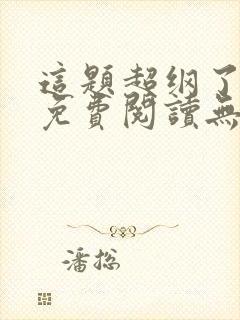 這題超纲了
免費閱讀無
潘総